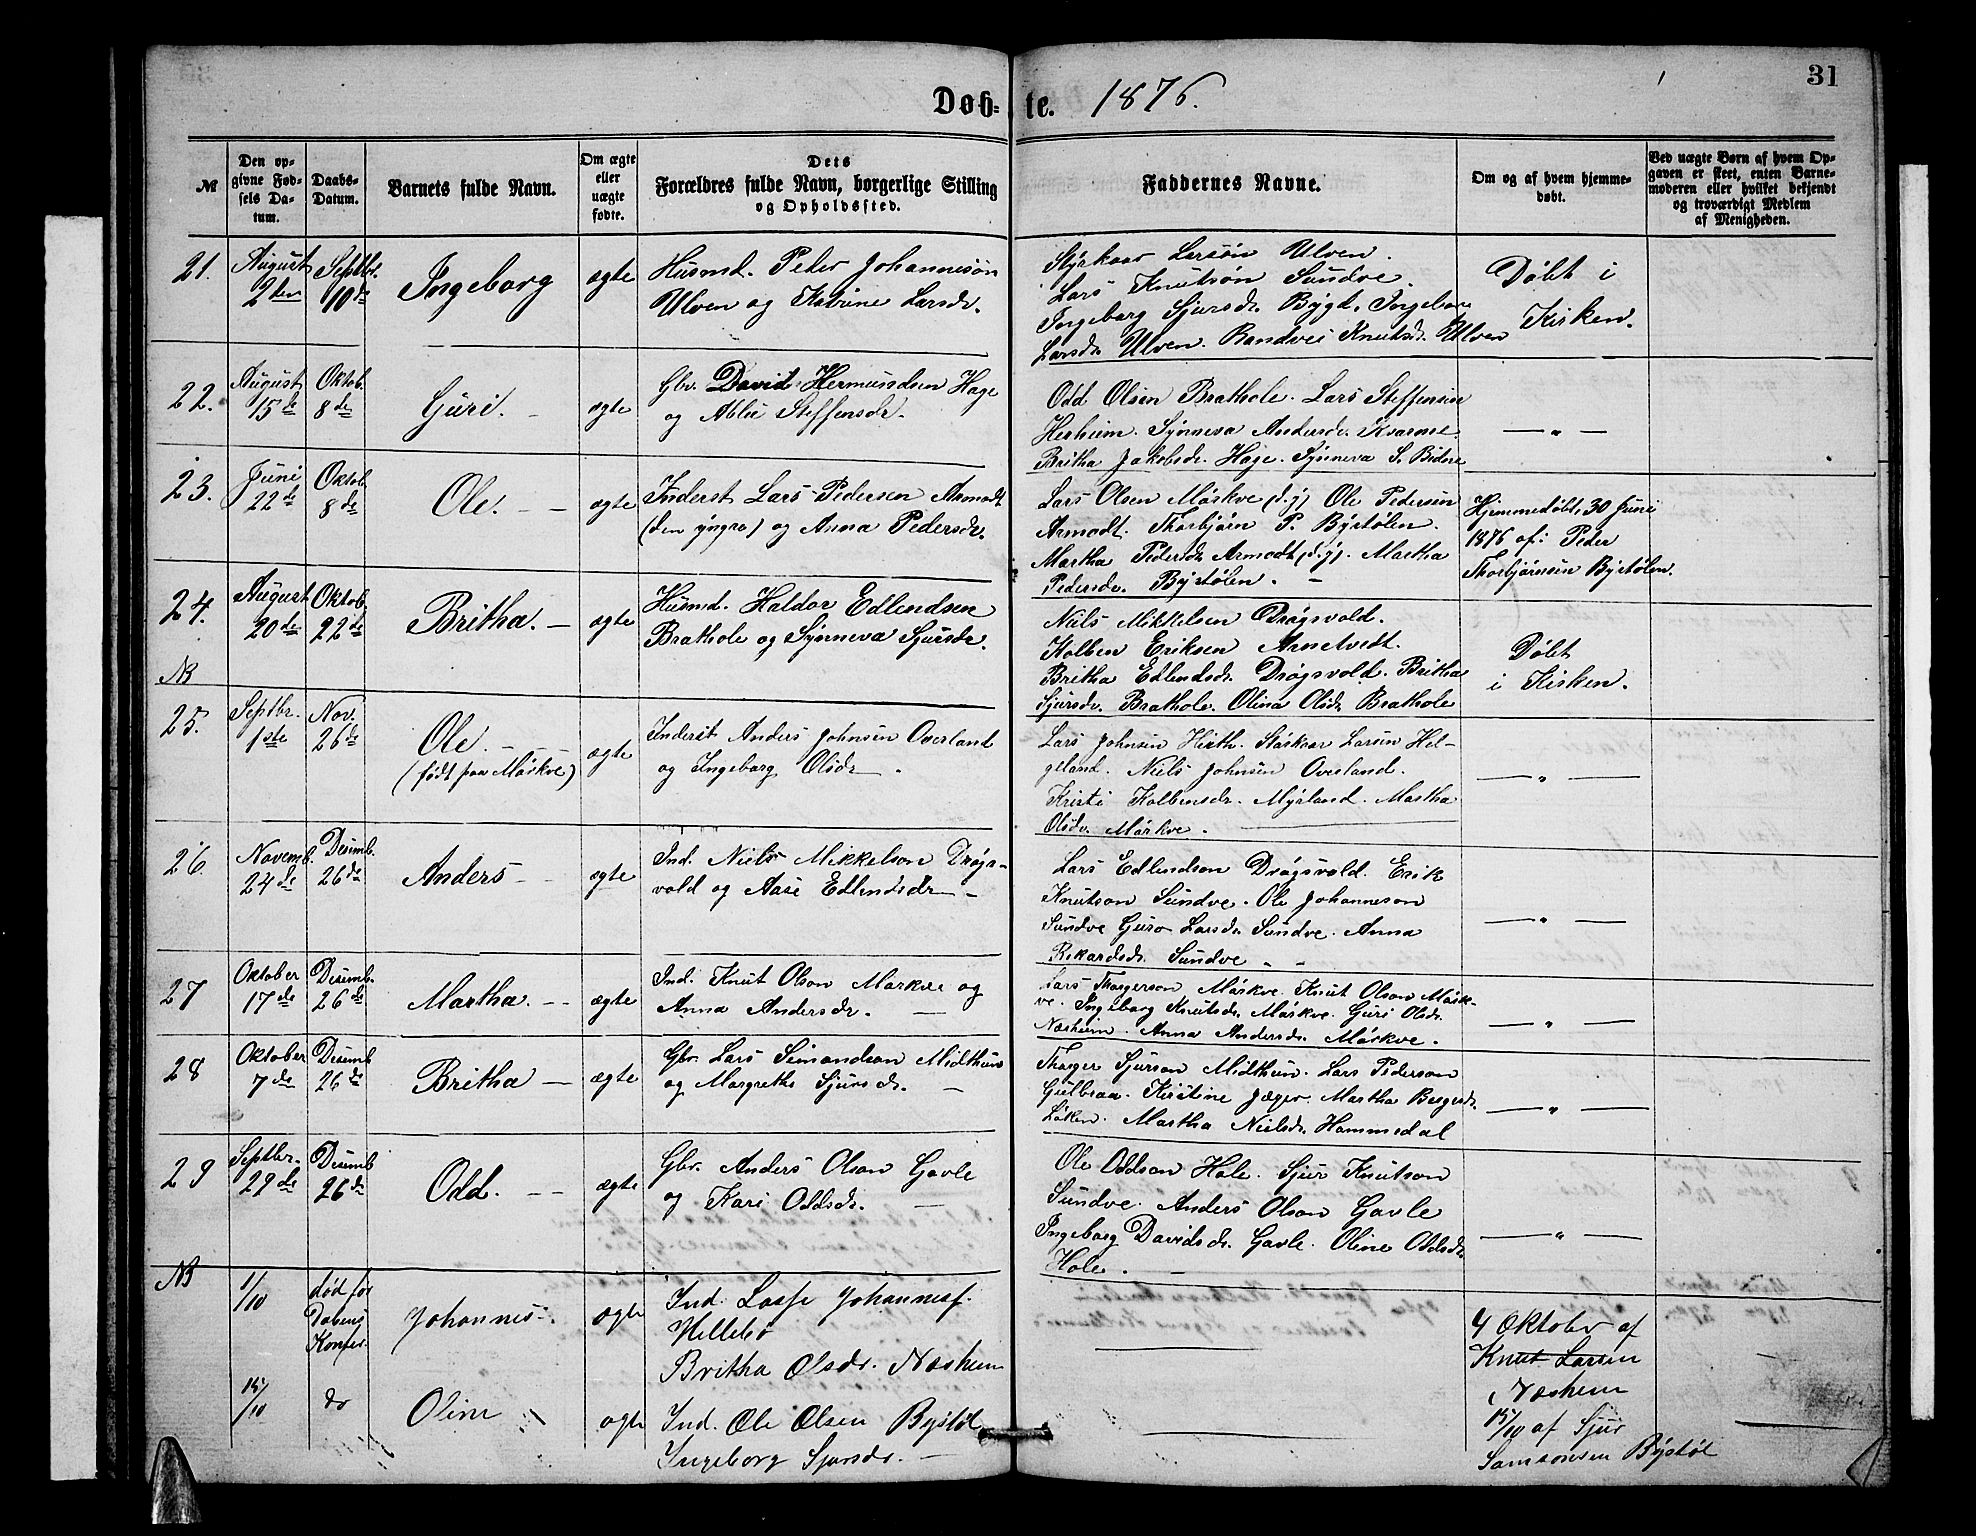 31
Døb- te. 1876.
№
Den op-
givne Fød-
sels Da-
tum.
Daabs-
Datum.
Barnets fulde Navn.
Om ægte
eller
uægte
fødte.
Dets
Forældres fulde Navn, borgerlige Stilling
og Opholdssted.
Faddernes Navne.
Om og af hvem hjemme-
døbt.
Ved uægte Børn af hvem Op-
gaven er skeet, enten Barne-
moderen eller hvilket bekjendt
og troværdigt Medlem
af Menigheden.
21.
August
2den
Septbr.
10de
Ingeborg
ægte
Husmd. Peder Johannesøn
Ulven og Katrine Larsdr.
Styrkaar Larsøn Ulven.
Lars Knutsøn Sundve.
Ingeborg Sjursdr. Bygd. Ingeborg
Larsdr. Ulven. Randvei Knutsdr. Ulven
Døbt i
Kirken.
22.
August
15de
Oktob.
8de
Guri.
ægte
Gbr. David Hermundsen Hage
og Ablu Steffensdr.
Odd Olsen Brathole. Lars Steffensen
Herheim. Synneva Andersdr. Kvarme.
Britha Jakobsdr. Hage. Synneva S. Bidne
— „ —
23.
Juni
22de
Oktob.
8de
Ole.
ægte
Inderst Lars Pedersen Armodt
(den yngre) og Anna Pedersdr.
Lars Olsen Mørkve (d.y.) Ole Pedersen
Armodt. Thorbjørn P. Bystølen.
Martha Pedersdr. Armodt (d.y.). Martha
Pedersdr. Bystølen.
Hjemmedøbt, 30 Juni
1876 af: Peder
Thorbjørnsen Bystølen.
24.
August
20de
Oktob.
22de
Britha.
ægte
Husmd. Haldor Edlendsen
Brathole og Synneva Sjursdr.
Niels Mikkelsen Drøgsvold.
Kolben Eriksen Arnetvedt.
Britha Edlendsdr. Drøgsvold. Britha
Sjursdr. Brathole. Olina Olsdr. Brathole
Døbt
i Kirken.
NB
25.
Septbr.
1ste
Nov.
26de
Ole.
(født paa Mørkve)
ægte
Inderst Anders Johnsen Overland
og Ingeborg Olsdr.
Lars Johnsen Hirth. Stárkaar Larsen Hel-
geland. Niels Johnsen Overland.
Kristi Kolbensdr. Myrland. Martha
Olsdr. Mørkve.
— „ —
26.
Novemb.
24de
Desemb.
26de
Anders
ægte
Ind. Niels Mikkelson Drøgs-
vold og Aase Edlendsdr
Lars Edlendson Drøgsvold. Erik
Knutson Sundve. Ole Johanneson
Sundve Guro Larsdr. Sundve. Anna
Rikardsdr. Sundve
— „ —
27
Oktober
17de
Desemb.
26de
Martha.
ægte
Ind. Knut Olson Mørkve og
Anna Andersdr.
Lars Thorgerson Mørkve. Knut Olson Mørk-
ve. Ingeborg Knutsdr. Mørkve. Guri Olsdr.
Næsheim. Anna Andersdr. Mørkve.
— „ —
28
Oktober
7de
Desemb.
26de
Britha
ægte
Gbr. Lars Simondson Midthun
og Margrethe Sjursdr.
Thorger Sjurson Midthun. Lars Pederson
Gulbraa. Kristine Jæger. Martha Bergersdr.
Løken. Martha Nielsdr. Hammedal
— „ —
29
Septbr.
29de
Desemb
26de
Odd.
ægte
Gbr. Anders Olson Gavle
og Kari Oddsdr.
Ole Oddson Hole. Sjur Knutson
Sundve. Anders Olson Gavle
Ingeborg Davidsdr. Gavle. Oline Oddsdr.
Hole.
— „ —
NB
1/10
død før
Dabens
Konfir.
Johannes
ægte
Ind. Lasse Johannesf.
Hillebø
Britha Olsdr. Næsheim
4 Oktober af
Knut Larsen
Næsheim
15/10
do
Oline
ægte
Ind. Ole Olsen Bystøl
Ingeborg Sjursdr.
15/10 af Sjur
Samsonsen Bystøl